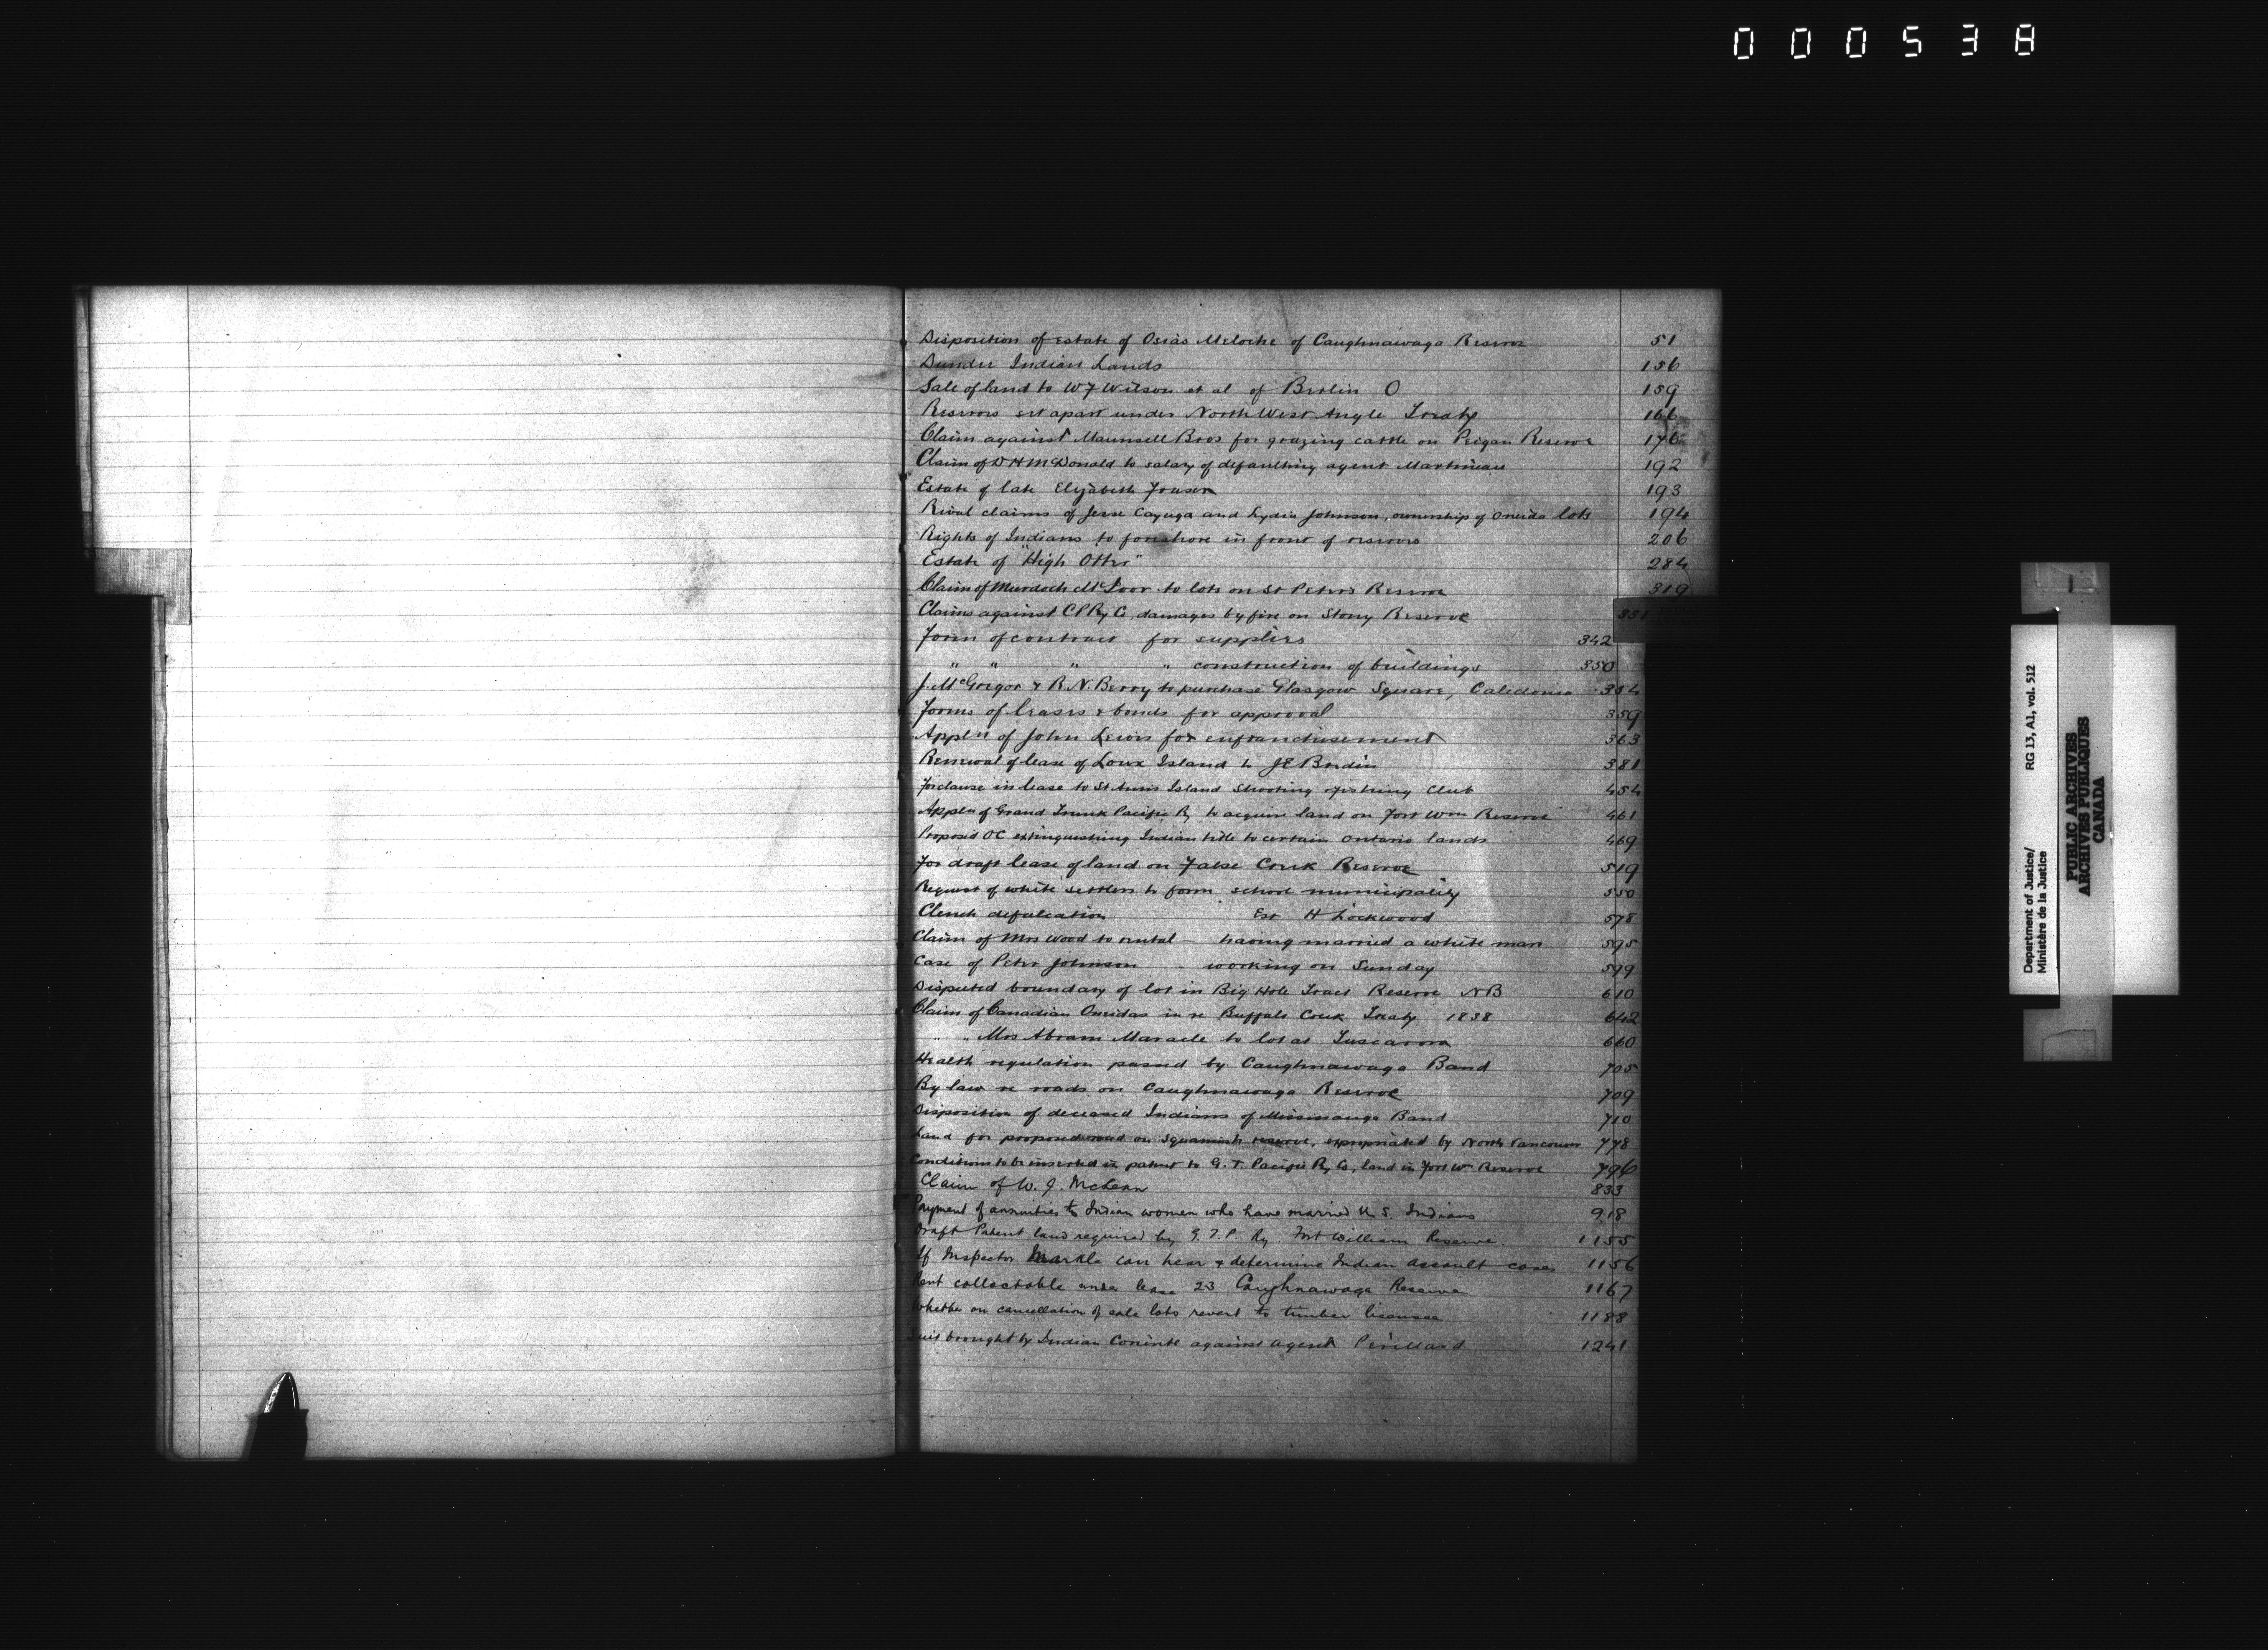 000538
Disposition of estate of Osias Meloche of Caughnawaga Reserve 51
Dundee Indian Lands 156
Sale of land to W J Wilson et al of Berlin O 159
Reserves set apart under North West Angle Treaty 166
Claim against Maunsell Bros for grazing cattle on Peigan Reserve 176
Claim of D H McDonald to salary of defaulting agent Martineau 192
Estate of late Elizabeth 193
Rival claims of Jesse Cayuga and Lydia Johnson, ownership of Oneida lots 194
Rights of Indians to foreshore in front of reserves 206
Estate of "High Otter" 284
Claim of Murdoch to lots on St Peters Reserve 319
Claims against C P Ry Co, damages by fire on Stony Reserve 331
Form of contract for supplies 342
" " " " construction of buildings 350
J. McGregor & R. N. Berry to purchase Glasgow Square, Caledonia 354
Forms of leases & bonds for approval 359
Appln of John Lewis for enfranchisement 363
Renewal of lease of Loux Island to J E 381
For clause in lease to St Anns Island Shooting & fishing Club 454
Appln of Grand Trunk Pacific Ry to acquire land on Fort Wm Reserve 461
Proposed OC extinguishing Indian title to certain Ontario lands 469
For draft lease of land on False Creek Reserve 519
Request of white settlers to form school municipality 550
Clench defalcation Est H Lockwood 578
Claim of Mrs Wood to rental - having married a white man 595
Case of Peter Johnson - working on Sunday 599
Disputed boundary of lot in Big Hole Tract Reserve N B 610
Claim of Canadian Oneidas in re Buffalo Creek Treaty 1838 642
" " Mrs Abram Maracle to lot at Tuscarora 660
Health regulation passed by Caughnawaga Band 705
By law re roads on Caughnawaga Reserve 709
Disposition of deceased Indians of Mississauga Band 710
Land for proposed road on Squamish reserve, expropriated by North Vancouver 778
Conditions to be inserted in patent to G. T. Pacific Ry Co, land in Fort Wm Reserve 796
Claim of W. J. McLean 833
Payment of annuities to Indian women who have married U. S. Indians 918
Draft Patent land required by G. T. P. Ry Fort William Reserve. 1155
If Inspector Markle can hear & determine Indian assault cases 1156
Rent collectable under lease 23 Caughnawaga Reserve 1167
Whether on cancellation of sale lots revert to timber licensee 1188
Suit brought by Indian against agent 1241
Department of Justice/ RG 13, A1, vol. 512
Ministère de la Justice
PUBLIC ARCHIVES
ARCHIVES PUBLIQUES
CANADA